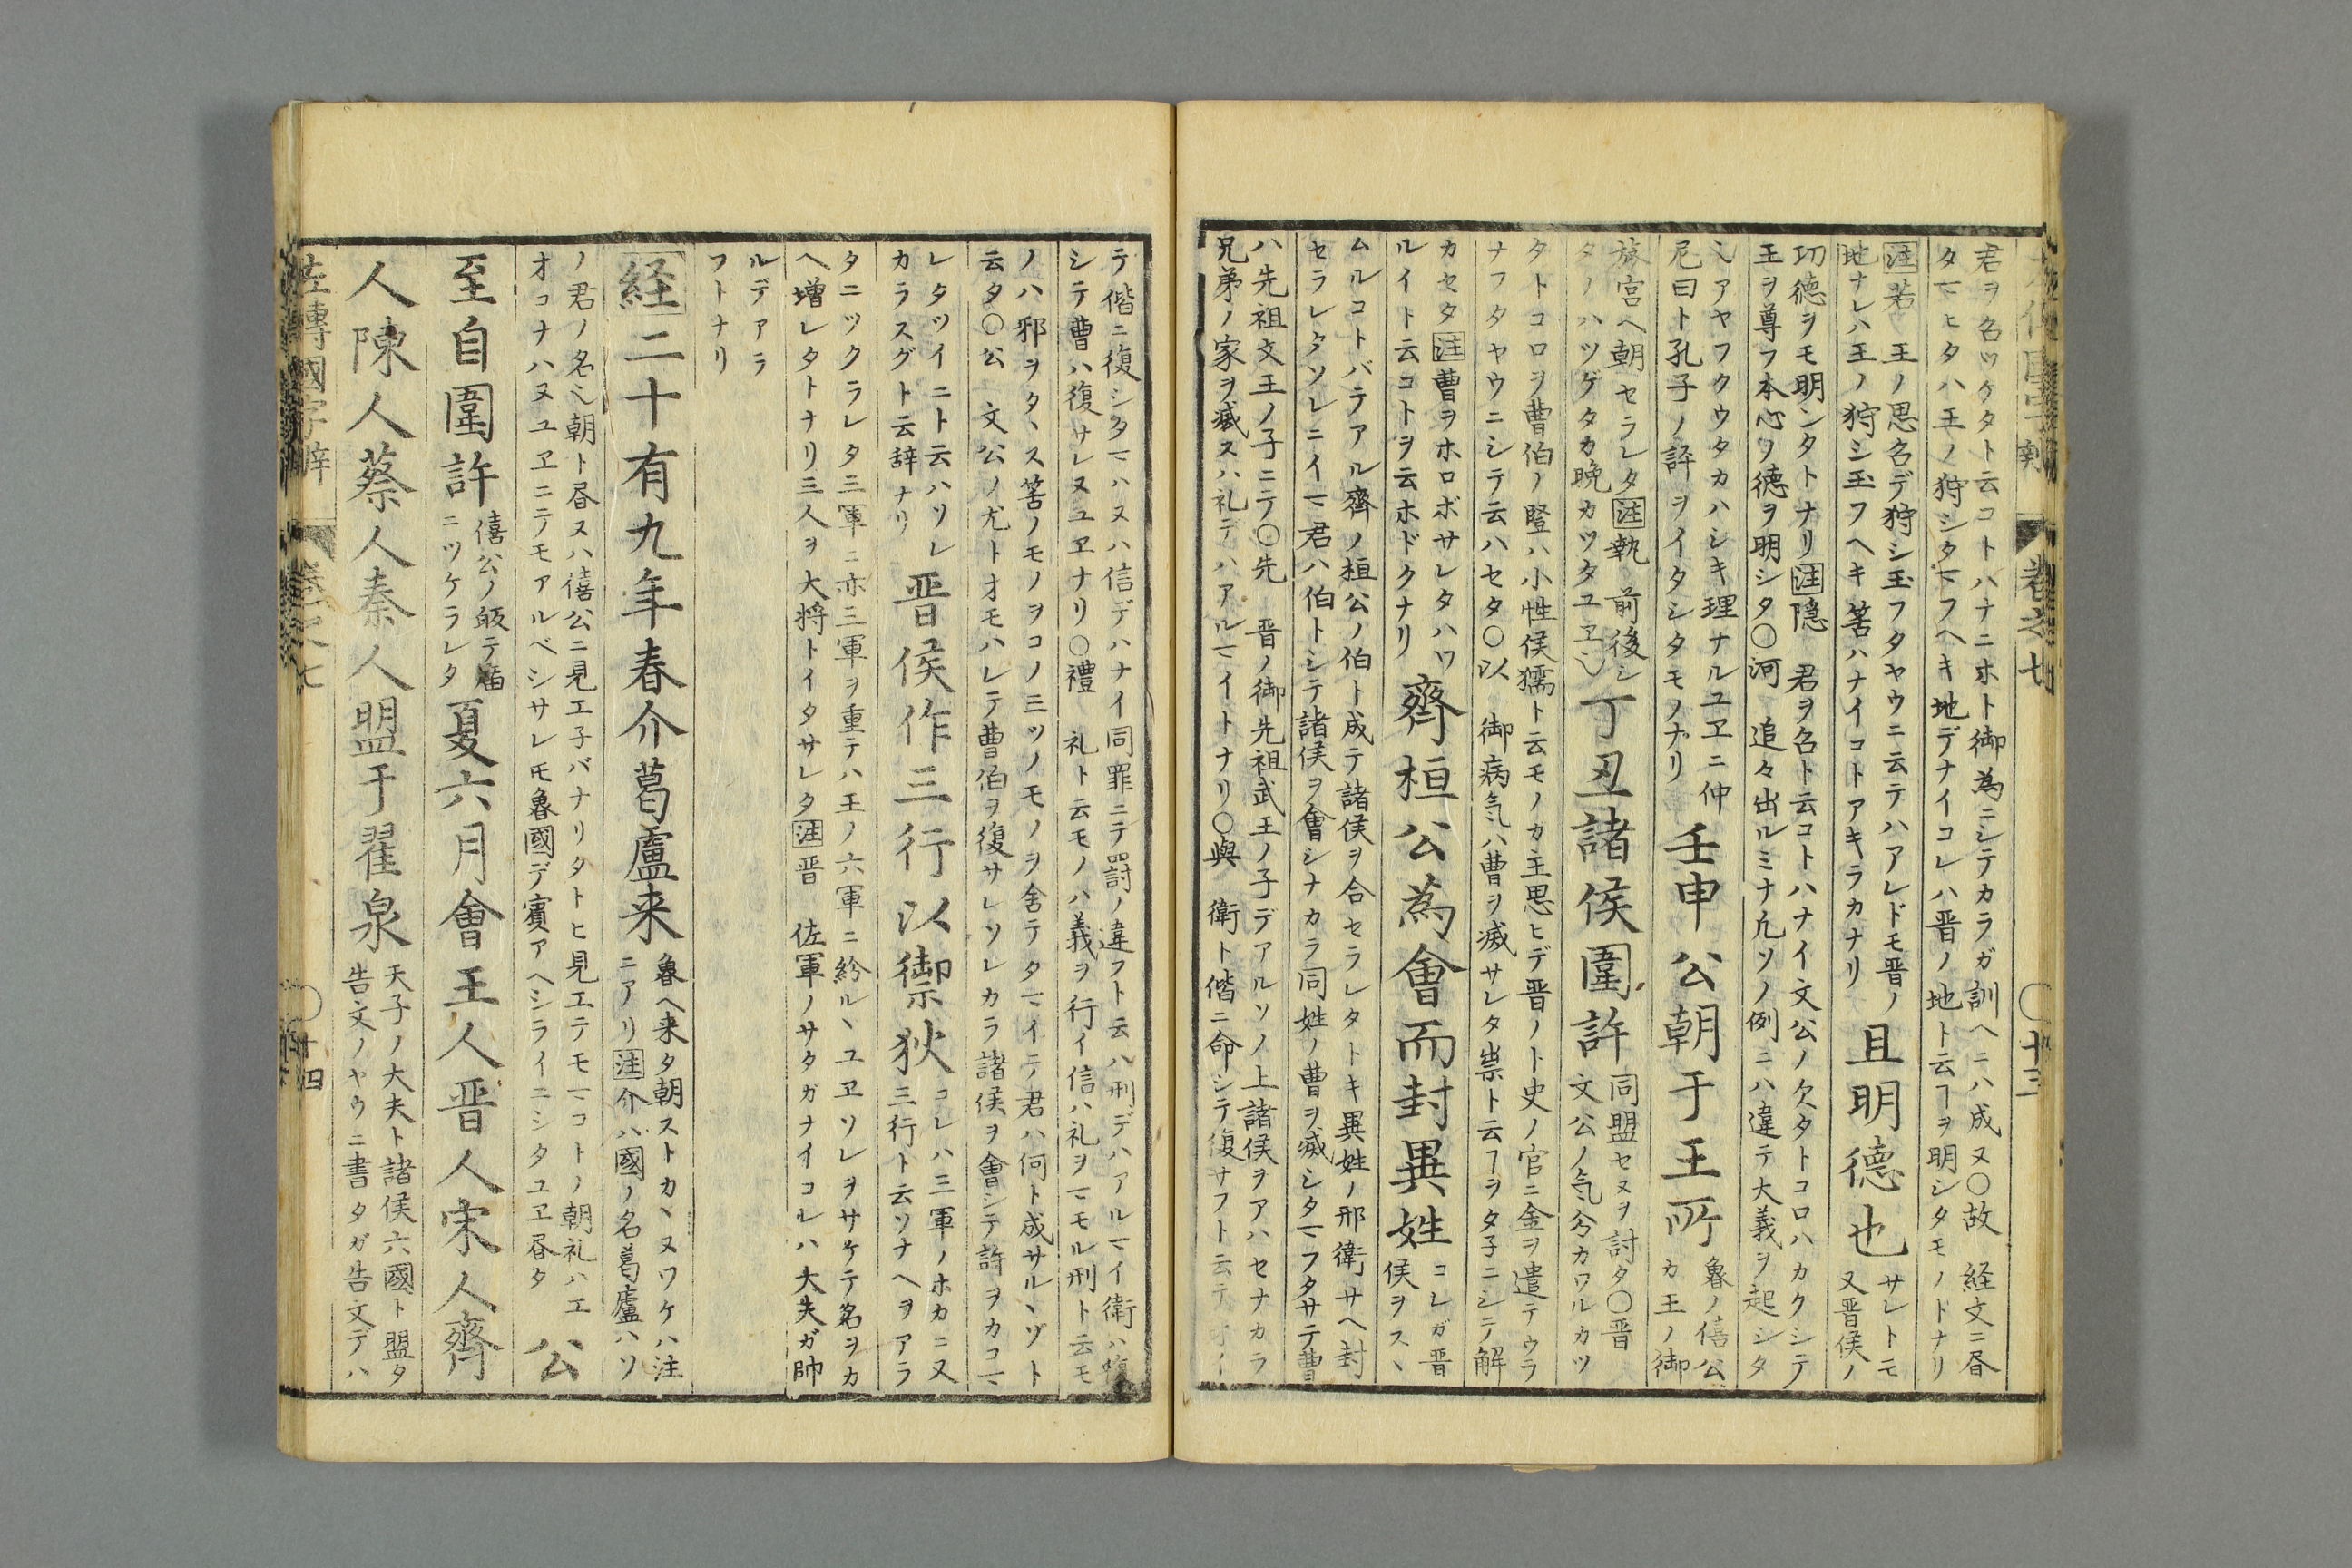 君ヲ名ツケタト云コトハナニホト御為ニシテカラガ訓ヘニハ成ヌ〇故 経文ニ昏
タマヒタハ王ノ狩シタマフヘキ地デナイコレハ晋ノ地ト云ヿヲ明シタモノドナリ
注若 王ノ思名デ狩シ玉フタヤウニ云テハアレドモ晋ノ
地ナレハ王ノ狩シ玉フヘキ筈ハナイコトアキラカナリ
且明德也
サレトモ
又晋侯ノ
功德ヲモ明ンタトナリ注隠 君ヲ名ト云コトハナイ文公ノ欠タトコロハカクシテ
王ヲ尊フ本心ヲ徳ヲ明シタ〇河 追々出ルミナ凡ソノ例ニハ違テ大義ヲ起シタ
シアヤフクウタカハシキ理ナルユヱニ仲
尼曰ト孔子ノ評ヲイタシタモノナリ
壬申公朝于王所
魯ノ僖公
カ王ノ御
旅宮ヘ朝セラレタ注執 前後シ
タノハツゲタカ晩カツタユヱ
丁丑諸侯圍許
同盟セヌヲ討タ〇晋
文公ノ気分カワルカツ
タトコロヲ曹伯ノ豎ハ小性侯獳ト云モノカ主思ヒデ晋ノト史ノ官ニ金ヲ遣テウラ
ナフタヤウニシテ云ハセタ〇以 御病気ハ曹ヲ滅サレタ祟ト云ヿヲタ子ニシテ解
カセタ注曹ヲホロボサレタハワ
ルイト云コトヲ云ホドクナリ
齊桓公為會而封異姓
コレガ晋
侯ヲスヽ
ムルコトバテアル齊ノ桓公ノ伯ト成テ諸侯ヲ合セラレタトキ異姓ノ邢衛サヘ封
セラレタソレニイマ君ハ伯トシテ諸侯ヲ會シナカラ同姓ノ曹ヲ滅シタマフタサテ曹
ハ先祖文王ノ子ニテ〇先 晋ノ御先祖武王ノ子デアルソノ上諸侯ヲアハセナカラ
兄弟ノ家ヲ滅スハ礼テハアルマイトナリ〇與 衛ト偕ニ命シテ復サフト云テ
テ偕ニ復シタマハヌハ信デハナイ同罪ニテ罸ノ違フト云ハ刑デハアルマイ衛ハ復
シテ曹ハ復サレヌユヱナリ〇禮 礼ト云モノハ義ヲ行イ信ハ礼ヲマモル刑ト云モ
ノハ邪ヲタヽス筈ノモノヲコノ三ツノモノヲ舍テタマイテ君ハ何ト成サルヽゾト
云タ〇公 文公ノ尤トオモハレテ曹伯ヲ復サレソレカラ諸侯ヲ會シテ許ヲカコマ
レタツイニト云ハソレ
カラスグト云辞ナリ
晋侯作三行以禦狄
コレハ三軍ノホカニ又
三行ト云ソナヘヲアラ
タニツクラレタ三軍ニ亦三軍ヲ重テハ王ノ六軍ニ紛ルヽユヱソレヲサケテ名ヲカ
ヘ增レタトナリ三人ヲ大将トイタサレタ注晋 佐軍ノサタガナイコレハ大夫ガ帥
ルデアラ
フトナリ
経二十有九年春介葛盧来
魯ヘ来タ朝ストカヽヌワケハ注
ニアリ注介ハ國ノ名葛盧ハソ
ノ君ノ名也朝ト昏ヌハ僖公ニ見エ子バナリタトヒ見エテモマコトノ朝礼ハエ
オコナハヌユヱニテモアルベシサレモ魯國デ賓アヘシライニシタユヱ昏タ
公
至自圍許
僖公ノ皈テ廟
ニツケラレタ
夏六月會王人晋人宋人齊
人陳人蔡人秦人盟于翟泉
天子ノ大夫ト諸侯六國ト盟タ
告文ノヤウニ書タガ告文デハ
左傳國字辯 卷之七 〇十四
卷之七 〇十三